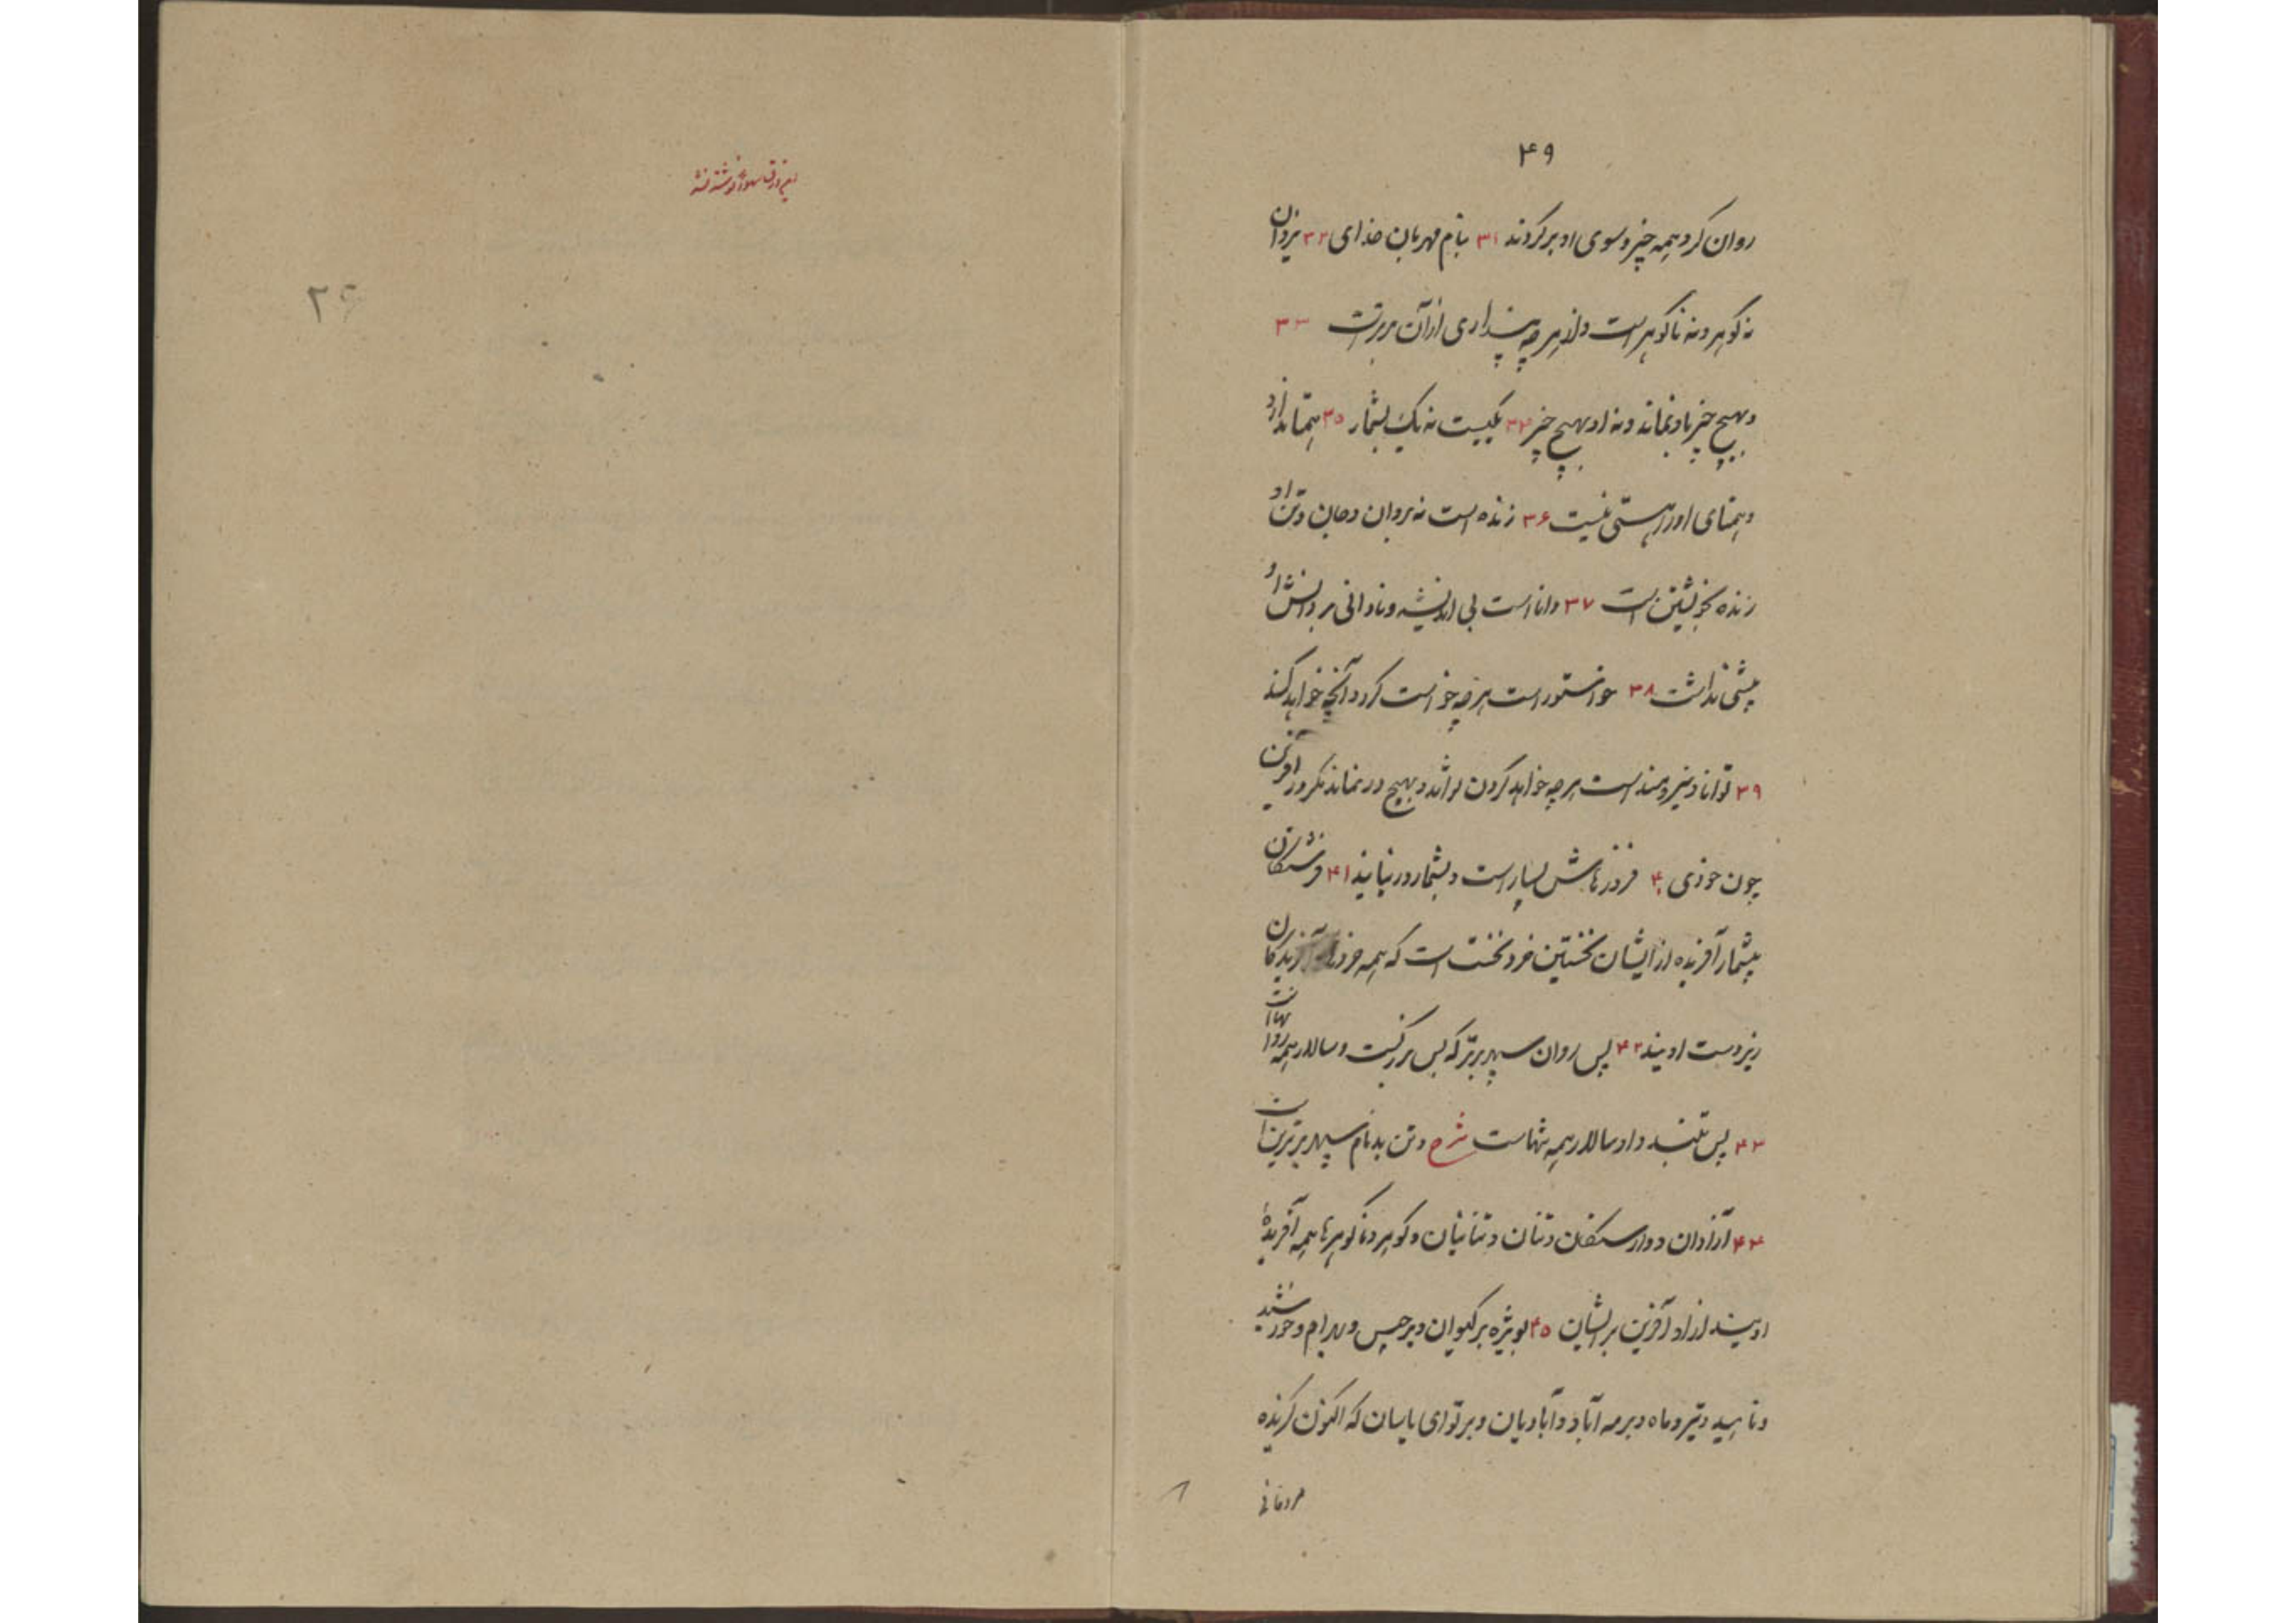 ۴۹
روان کرد همه چیز و سوی او برگردند ۳۱ بنام مهربان خدای ۳۲ یزدان
نه گوهر و نه ناگوهر است و از هر چه پنداری ازآن برترست ۳۳
و هیچ چیز باو نماند و نه او بهیچ چیز ۳۴ یکیست نه یک بشمار ۳۵ همتا ندارد
و همتای اورا هستی نیست ۳۶ زنده است نه بروان و جان و تن او
زنده بخویشتن است ۳۷ دانا است بی اندیشه و نادانی بر دانش او
پیشی نداشت ۳۸ خواستور است هر چه خواست کرد و آنچه خواهد کند
۳۹ توانا و نیرومند است هر چه خواهد کردن تواند و بهیچ درنماند مگر در آفریدن
چون خودی ۴۰ فروزهاش بسیار است و بشمار در نیایند ۴۱ فرشتگان
بیشمار آفریده از ایشان نخستین خرد نخست است که همه خردها آفریدگان
زیردست اویند ۴۲ پس روان سپهر برتر که بس بزرگست و سالار همه روانهاست
۴۳ پس تنبد و او سالار همه تنهاست شرح و تن بد نام سپهر برترین است
۴۴ آزادان و وارستگان و تنان و تنانیان و گوهر و ناگوهرها همه آفریدهٔ
اویند ازاو آفرین بر ایشان ۴۵ بویژه بر کیوان و برجیس و بهرام و خورشید
و ناهید و تیر و ماه و بر مه آباد و آبادیان و بر تو ای یاسان که اکنون گزیده